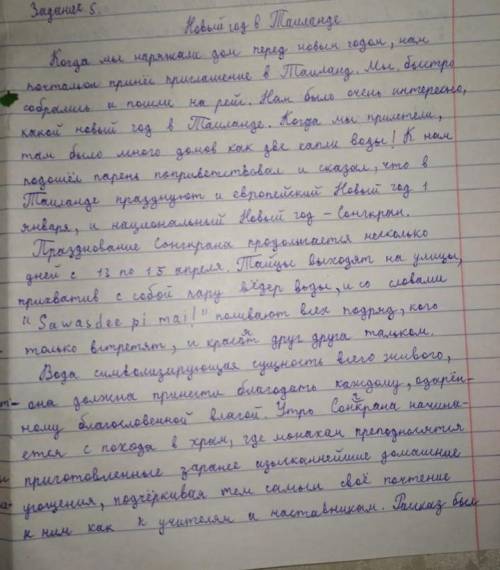 Задание 5.
Новый год в Таиланде
Когда мы наряжали дом перед новым годом, нам
почтальон принёс приглашение в Таиланд. Мы быстро
собрались и пошли на рейс. Нам было очень интересно,
какой новый год в Таиланде. Когда мы прилетели,
там было много домов как две капли воды! К нам
подошёл парень поприветствовал и сказал, что в
Таиланде празднуют и европейский Новый год 1
января, и национальный Новый год – Сонгкран.
Празднование Сонгкрана продолжается несколько
дней с 13 по 15 апреля. Тайцы выходят на улицы,
прихватив с собой пару вёдер воды, и со словами
"Sawasdee pi mai!" поливают всех подряд, кого
только встретят, и красят друг друга тальком.
Вода символизирующая сущность всего живого,
она должна принести благодать каждому, одарён-
ному благословенной влагой. Утро Сонгкрана начина-
ется с похода в храм, где монахам преподносятся
приготовленные заранее изысканнейшие домашние
угощения, подчёркивая тем самым своё почтение
к ним как к учителям и наставникам. Рассказ был